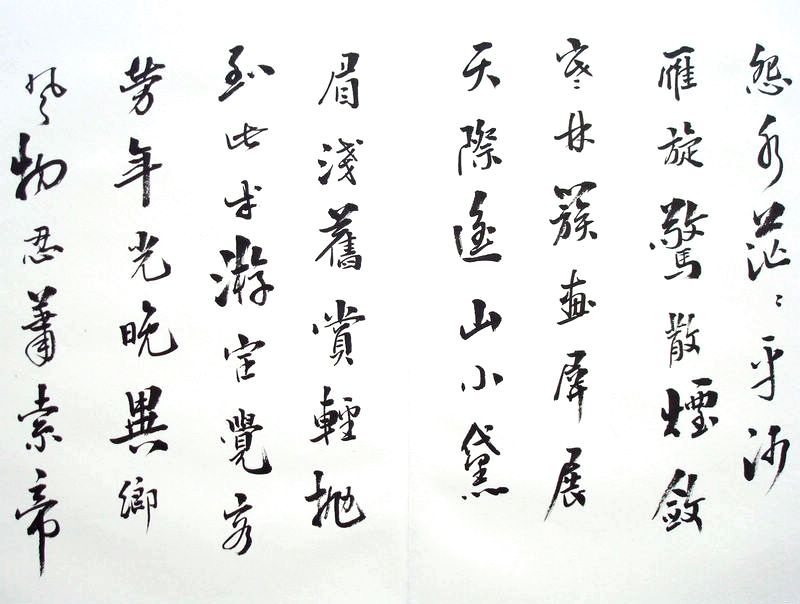 怨水茫々平沙
雁旋驚散煙斂
寒林簇畫屏展
天際遙山小黛
眉淺舊賞輕拋
到此成游宦覺客
勞年光晚異鄉
風物忍蕭索帝